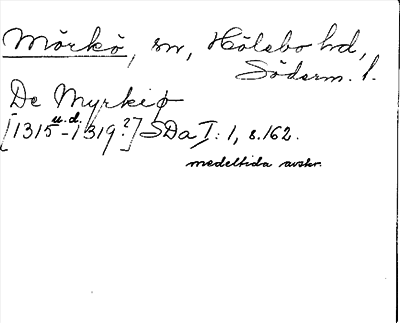 Mörkö, sn, Hölebo hd,
Söderm. l.
De Myrkiø
[1315 u.d. - 1319?] SDa I: 1, s. 162.
medeltida avskr.